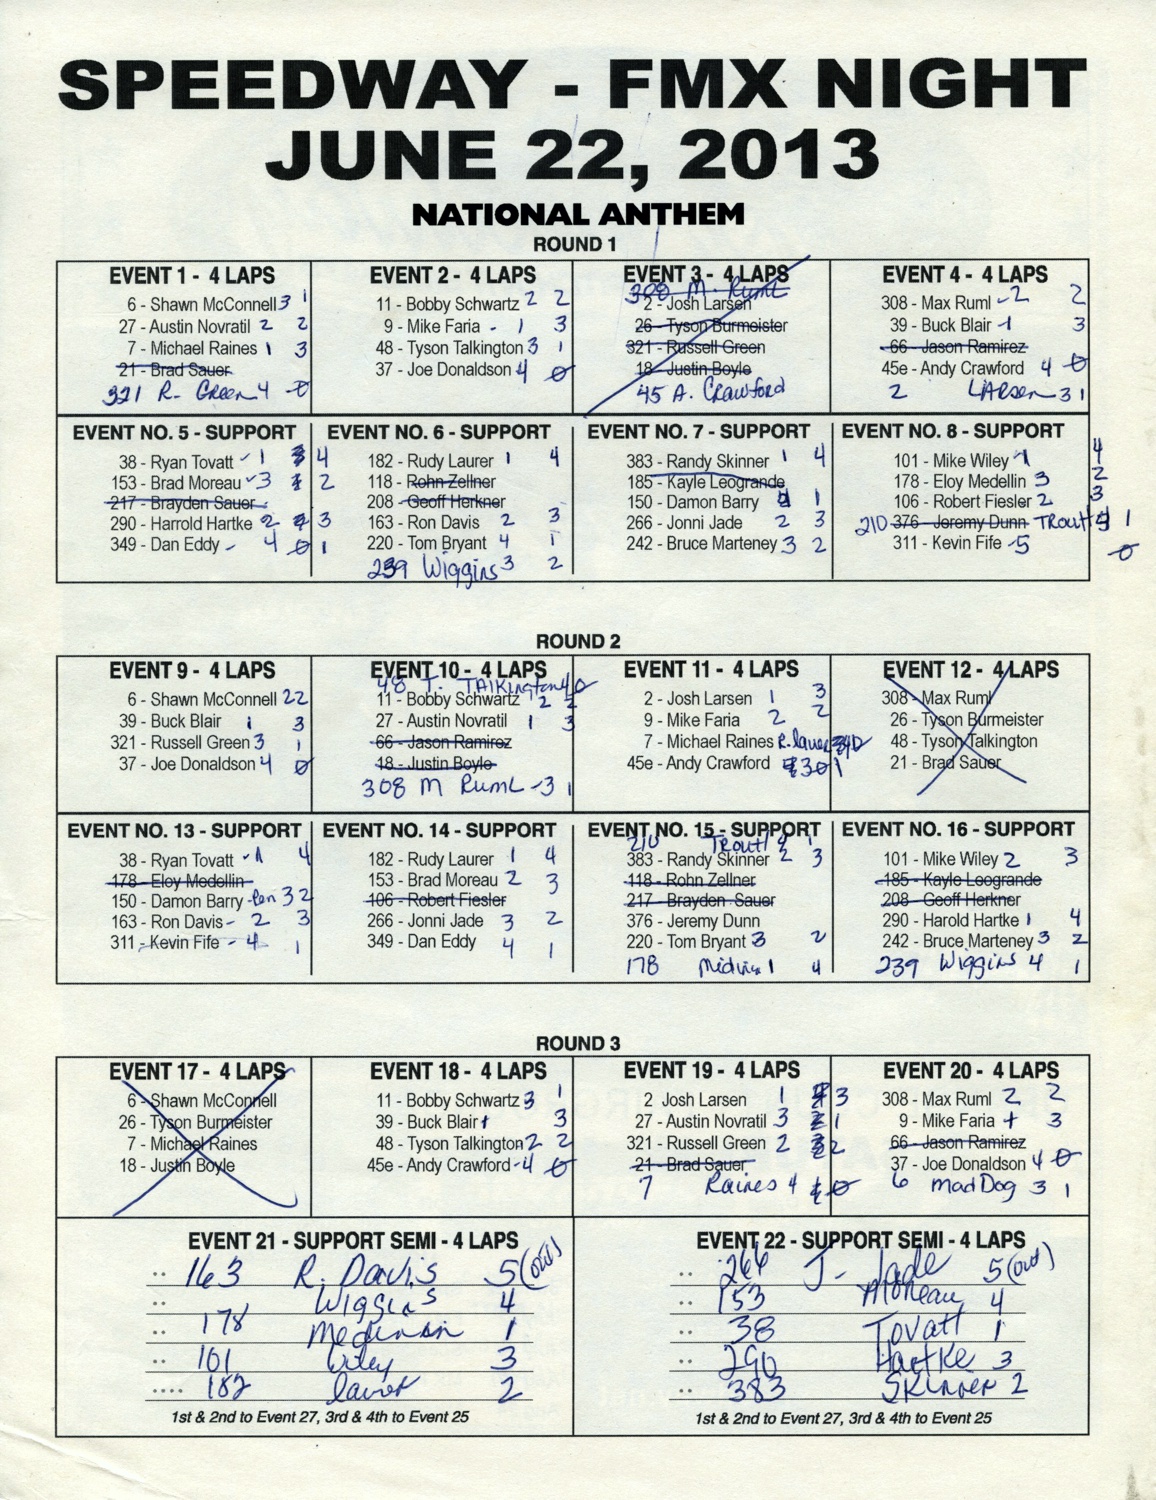 SPEEDWAY - FMX NIGHT
JUNE 22, 2013
NATIONAL ANTHEM
ROUND 1
EVENT 1 - 4 LAPS
6 - Shawn McConnell 3 1
27 - Austin Novratil 2 2
7 - Michael Raines 1 3
21 - Brad Sauer
321 R. Green 4 0
EVENT 2 - 4 LAPS
11 - Bobby Schwartz 2 2
9 - Mike Faria - 1 3
48 - Tyson Talkington 3 1
37 - Joe Donaldson 4 0
EVENT 3 - 4 LAPS
308 M. Ruml
2 - Josh Larsen
26 - Tyson Burmeister
321 - Russell Green
18 - Justin Boyle
45 A. Crawford
EVENT 4 - 4 LAPS
308 - Max Ruml - 2 2
39 - Buck Blair - 1 3
66 - Jason Ramirez
45e - Andy Crawford 4 0
2 LARSEN 3 1
EVENT NO. 5 - SUPPORT
38 - Ryan Tovatt 1 4
153 - Brad Moreau 3 2
217 - Brayden Sauer
290 - Harrold Hartke 2 3
349 - Dan Eddy - 4 0 1
EVENT NO. 6 - SUPPORT
182 - Rudy Laurer 1 4
118 - Rohn Zellner
208 - Geoff Herkner
163 - Ron Davis 2 3
220 - Tom Bryant 4 1
239 Wiggins 3 2
EVENT NO. 7 - SUPPORT
383 - Randy Skinner 1 4
185 - Kayle Leogrande
150 - Damon Barry 4 1
266 - Jonni Jade 2 3
242 - Bruce Marteney 3 2
EVENT NO. 8 - SUPPORT
101 - Mike Wiley 1 4
178 - Eloy Medellin 3 2
106 - Robert Fiesler 2 3
210 376 - Jeremy Dunn TROUT 4 1
311 - Kevin Fife - 5 0
ROUND 2
EVENT 9 - 4 LAPS
6 - Shawn McConnell 2 2
39 - Buck Blair 1 3
321 - Russell Green 3 1
37 - Joe Donaldson 4 0
EVENT 10 - 4 LAPS
48 T. TALKington 4 0
11 - Bobby Schwartz 2 2
27 - Austin Novratil 1 3
66 - Jason Ramirez
18 - Justin Boyle
308 M Ruml - 3 1
EVENT 11 - 4 LAPS
2 - Josh Larsen 1 3
9 - Mike Faria 2 2
7 - Michael Raines 4 0
45e - Andy Crawford 3 1
EVENT 12 - 4 LAPS
308 - Max Ruml
26 - Tyson Burmeister
48 - Tyson Talkington
21 - Brad Sauer
EVENT NO. 13 - SUPPORT
38 - Ryan Tovatt - 1 4
178 - Eloy Medellin
150 - Damon Barry 3 2
163 - Ron Davis - 2 3
311 - Kevin Fife - 4 1
EVENT NO. 14 - SUPPORT
182 - Rudy Laurer 1 4
153 - Brad Moreau 2 3
106 - Robert Fiesler
266 - Jonni Jade 3 2
349 - Dan Eddy 4 1
EVENT NO. 15 - SUPPORT
210 Trout 4 1
383 - Randy Skinner 2 3
118 - Rohn Zellner
217 - Brayden Sauer
376 - Jeremy Dunn
220 - Tom Bryant 3 2
178 1 4
EVENT NO. 16 - SUPPORT
101 - Mike Wiley 2 3
185 - Kayle Leogrande
208 - Geoff Herkner
290 - Harold Hartke 1 4
242 - Bruce Marteney 3 2
239 Wiggins 4 1
ROUND 3
EVENT 17 - 4 LAPS
6 - Shawn McConnell
26 - Tyson Burmeister
7 - Michael Raines
18 - Justin Boyle
EVENT 18 - 4 LAPS
11 - Bobby Schwartz 3 1
39 - Buck Blair 1 3
48 - Tyson Talkington 2 2
45e - Andy Crawford - 4 0
EVENT 19 - 4 LAPS
2 Josh Larsen 1 3
27 - Austin Novratil 3 1
321 - Russell Green 2 2
21 - Brad Sauer
7 Raines 4 0
EVENT 20 - 4 LAPS
308 - Max Ruml 2 2
9 - Mike Faria 1 3
66 - Jason Ramirez
37 - Joe Donaldson 4 0
6 mad Dog 3 1
EVENT 21 - SUPPORT SEMI - 4 LAPS
163 R. Davis 5 (out)
Wiggins 4
178 1
101 Wiley 3
182 2
1st & 2nd to Event 27, 3rd & 4th to Event 25
EVENT 22 - SUPPORT SEMI - 4 LAPS
266 J. Jade 5 (out)
153 Moreau 4
38 Tovatt 1
290 Hartke 3
383 SKinner 2
1st & 2nd to Event 27, 3rd & 4th to Event 25